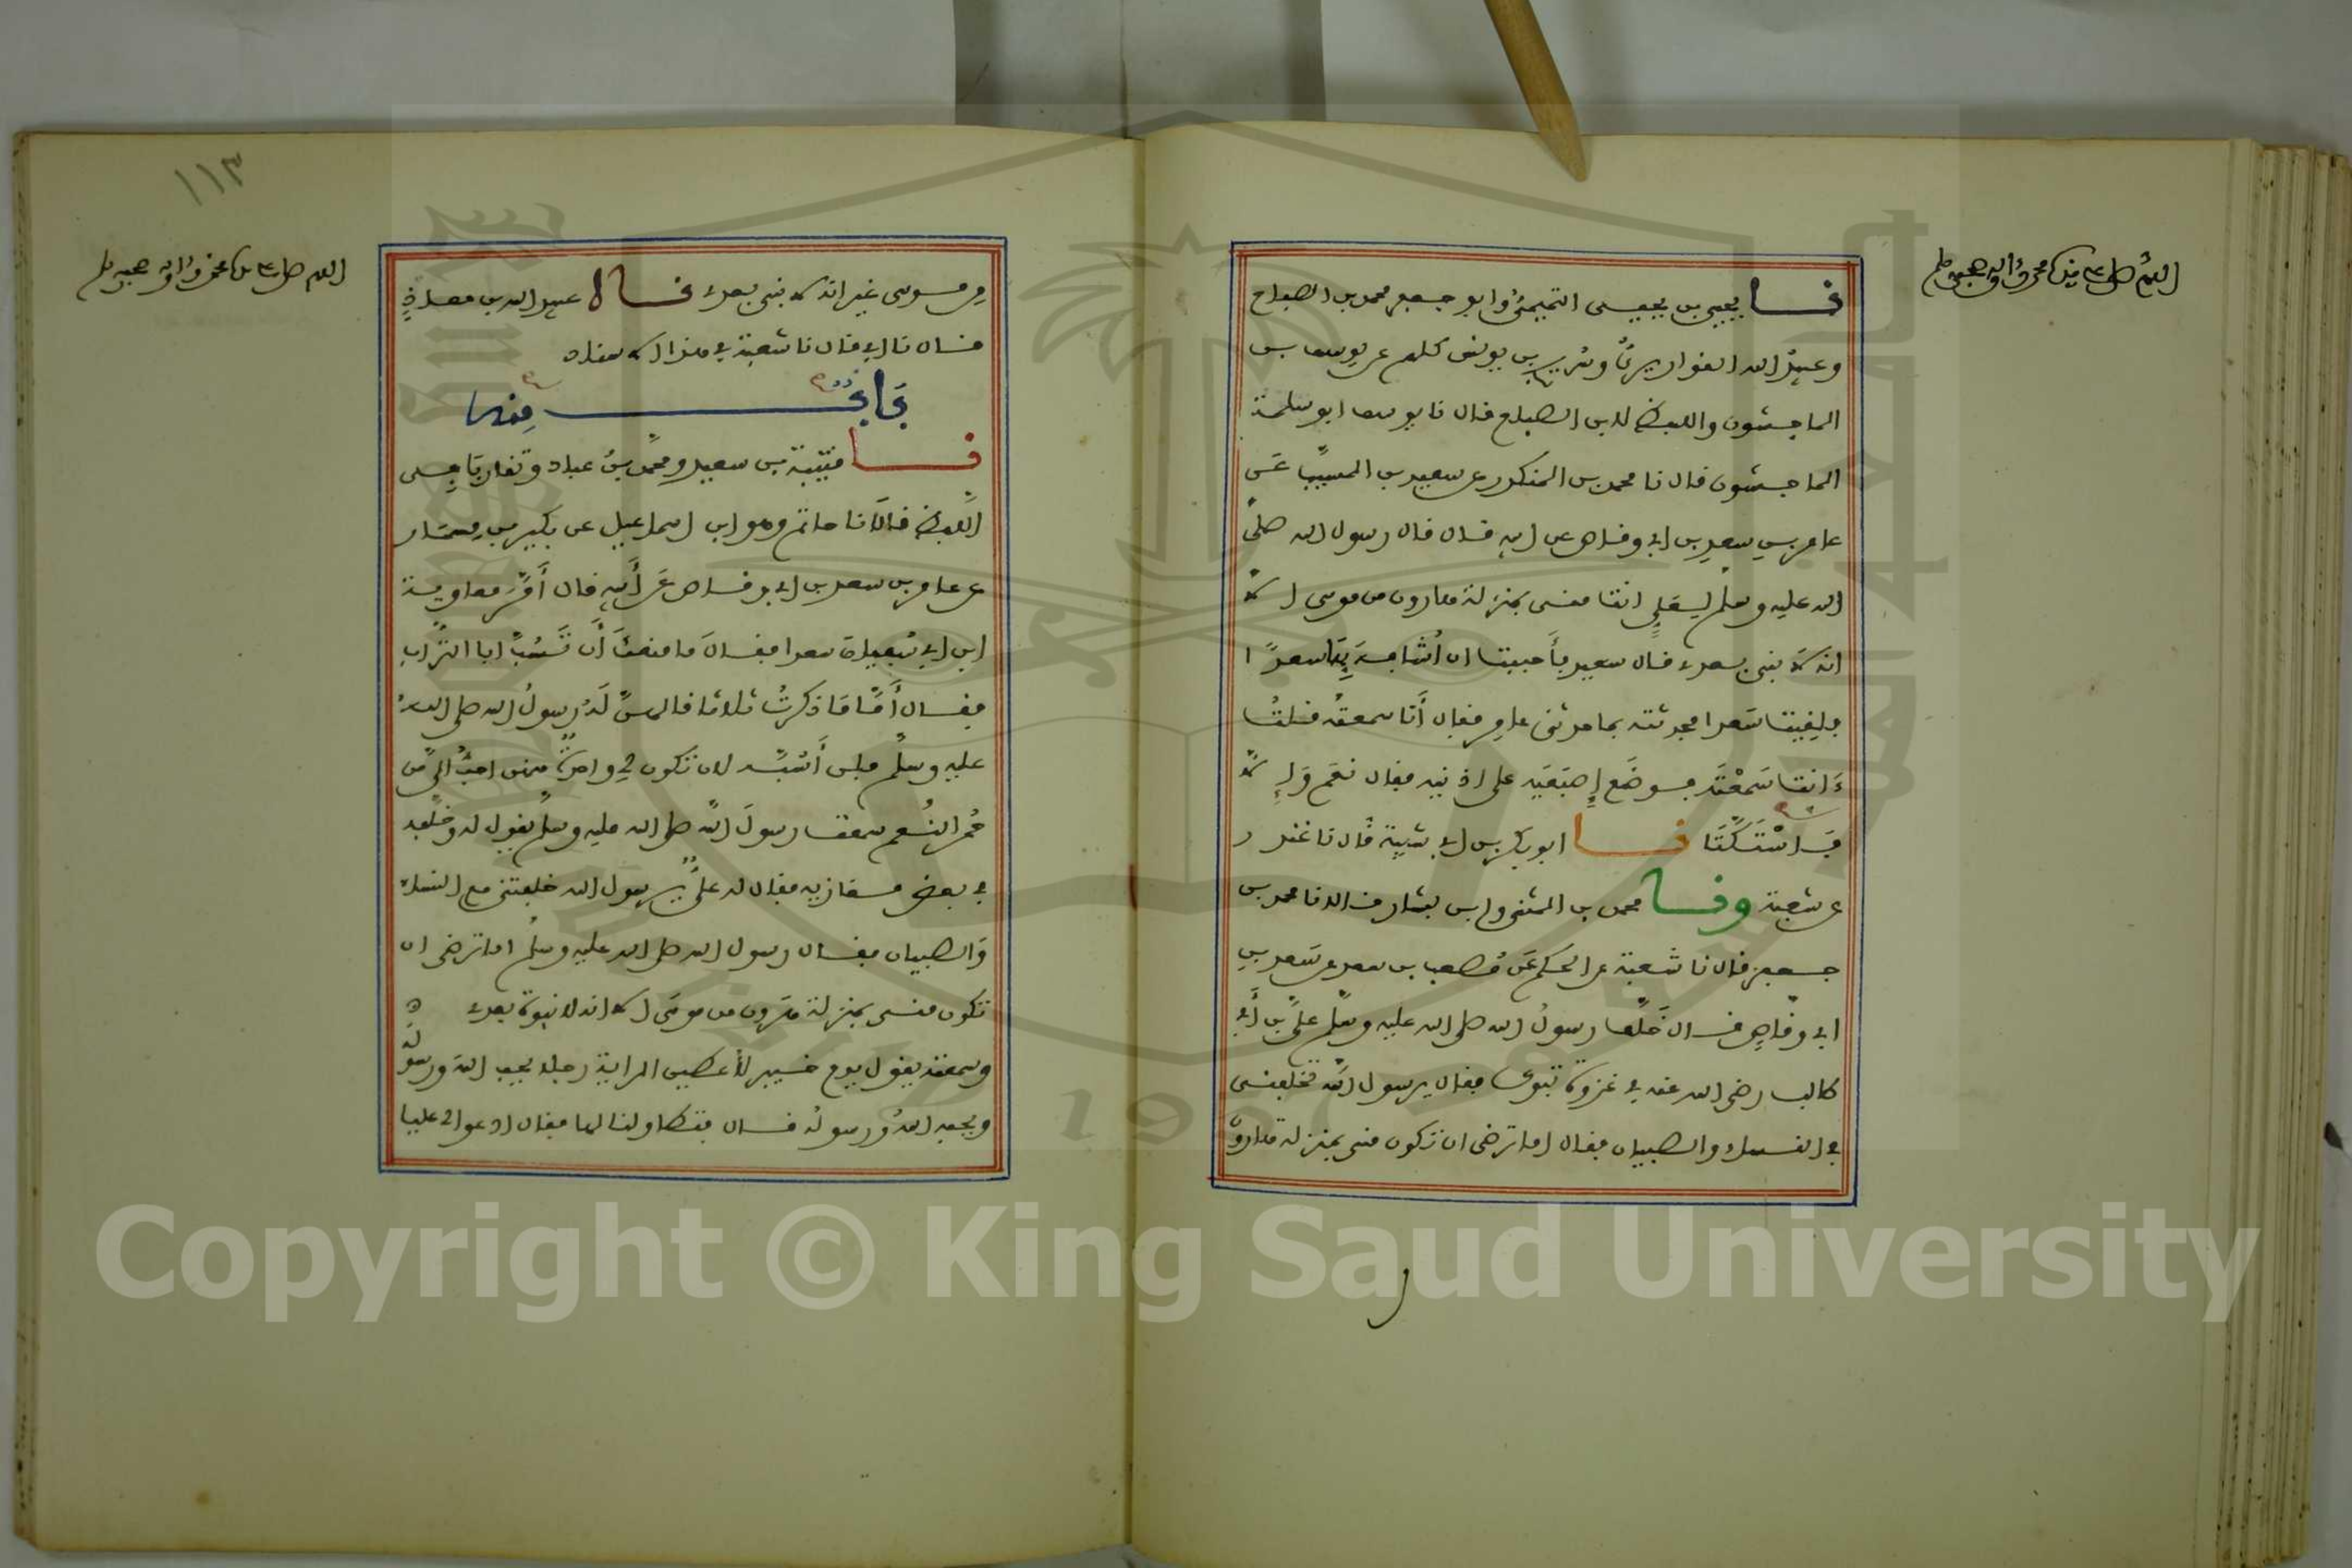 اللهم صل على سيدنا محمد وآله وصحبه وسلم
نا يحيى بن يحيى التميمي وابو جعفر محمد بن الصباح
وعبيد الله القواريري وسريج بن يونس كلهم عن يوسف بن
الماجشون واللفظ لابن الصباح قال نا يوسف ابو سلمة
الماجشون قال نا محمد بن المنكدر عن سعيد بن المسيب عن
عامر بن سعد بن ابي وقاص عن ابيه قال قال رسول الله صلى
الله عليه وسلم لعلي انت مني بمنزلة هارون من موسى الا
انه لا نبي بعدي قال سعيد فأحببت ان أشافه بها سعدا
فلقيت سعدا فحدثته بما حدثني عامر فقال أنا سمعته فقلت
ءانت سمعته فوضع إصبعيه على اذنيه فقال نعم وإلا
فاستكتا نا ابو بكر بن ابي شيبة قال نا غندر
عن شعبة ونا محمد بن المثنى وابن بشار قالا نا محمد بن
جعفر قال نا شعبة عن الحكم عن مصعب بن سعد عن سعد بن
ابي وقاص قال خلف رسول الله صلى الله عليه وسلم علي بن أبي
طالب رضي الله عنه في غزوة تبوك فقال يرسول الله تخلفني
في النساء والصبيان فقال اما ترضى ان تكون مني بمنزلة هارون
١١٣
اللهم صل على سيدنا محمد وآله وصحبه وسلم
من موسى غير انه لا نبي بعدي نا عبيد الله بن معاذ
قال نا ابي قال نا شعبة في هذا الاسناد
باب منه
نا قتيبة بن سعيد ومحمد بن عباد وتقاربا في
اللفظ قالا نا حاتم وهو ابن اسماعيل عن بكير بن مسمار
عن عامر بن سعد بن ابي وقاص عن أبيه قال أمر معاوية
ابن ابي سفيان سعدا فقال ما منعك أن تسب ابا التراب
فقال أما ما ذكرت ثلاثا قالهن له رسول الله صلى الله
عليه وسلم فلن أسبه لان تكون لي واحدة منهن احب الي من
حمر النعم سمعت رسول الله صلى الله عليه وسلم يقول له وخلفه
في بعض مغازيه فقال له علي يرسول الله خلفتني مع النساء
والصبيان فقال رسول الله صلى الله عليه وسلم اما ترضى ان
تكون مني بمنزلة هرون من موسى الا انه لا نبوة بعدي
وسمعته يقول يوم خيبر لأعطين الراية رجلا يحب الله ورسوله
ويحبه الله ورسوله قال فتطاولنا لها فقال ادعوا لي عليا
Copyright © King Saud University
1957